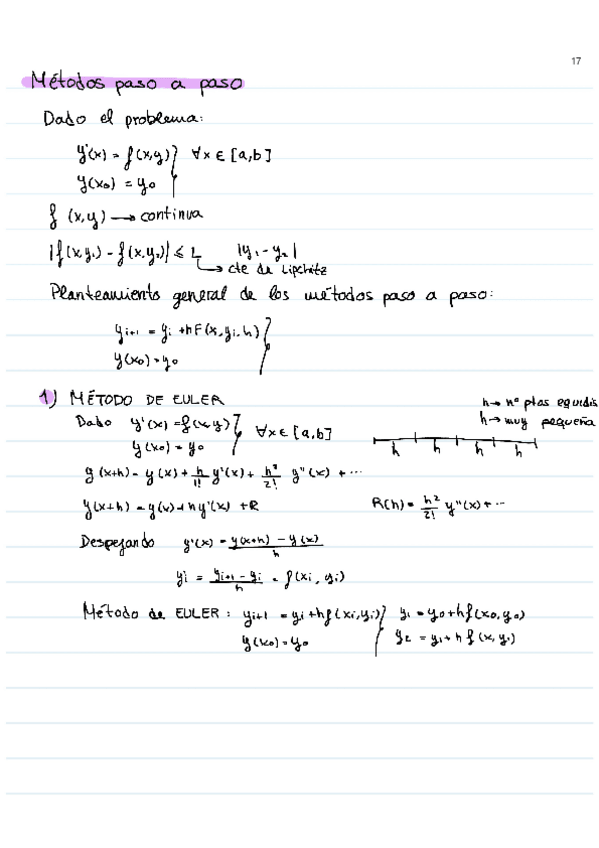 17
Métodos paso a paso
Dado el problema:
y'(x) = f(x,y) } ∀x ∈ [a,b]
y(x₀) = y₀
f (x,y) → continua
|f(x,y₁) - f(x,y₂)| ≤ L |y₁ - y₂|
→ cte de Lipchitz
Planteamiento general de los métodos paso a paso:
yᵢ₊₁ = yᵢ + hF(x,yᵢ,h) }
y(x₀) = y₀
1) MÉTODO DE EULER
h → nº ptos equidis
Dado y'(x) = f(x,y) } ∀x ∈ [a,b]
h → muy pequeña
y(x₀) = y₀
h h h h
y(x+h) = y(x) + h/1! y'(x) + h²/2! y''(x) + ...
y(x+h) = y(x) + hy'(x) + R R(h) = h²/2! y''(x) + ...
Despejando y'(x) = y(x+h) - y(x) / h
y'ᵢ = yᵢ₊₁ - yᵢ / h = f(xᵢ, yᵢ)
Método de EULER: yᵢ₊₁ = yᵢ + hf(xᵢ,yᵢ) } y₁ = y₀ + hf(x₀,y₀)
y(x₀) = y₀ y₂ = y₁ + h f(x,y₁)